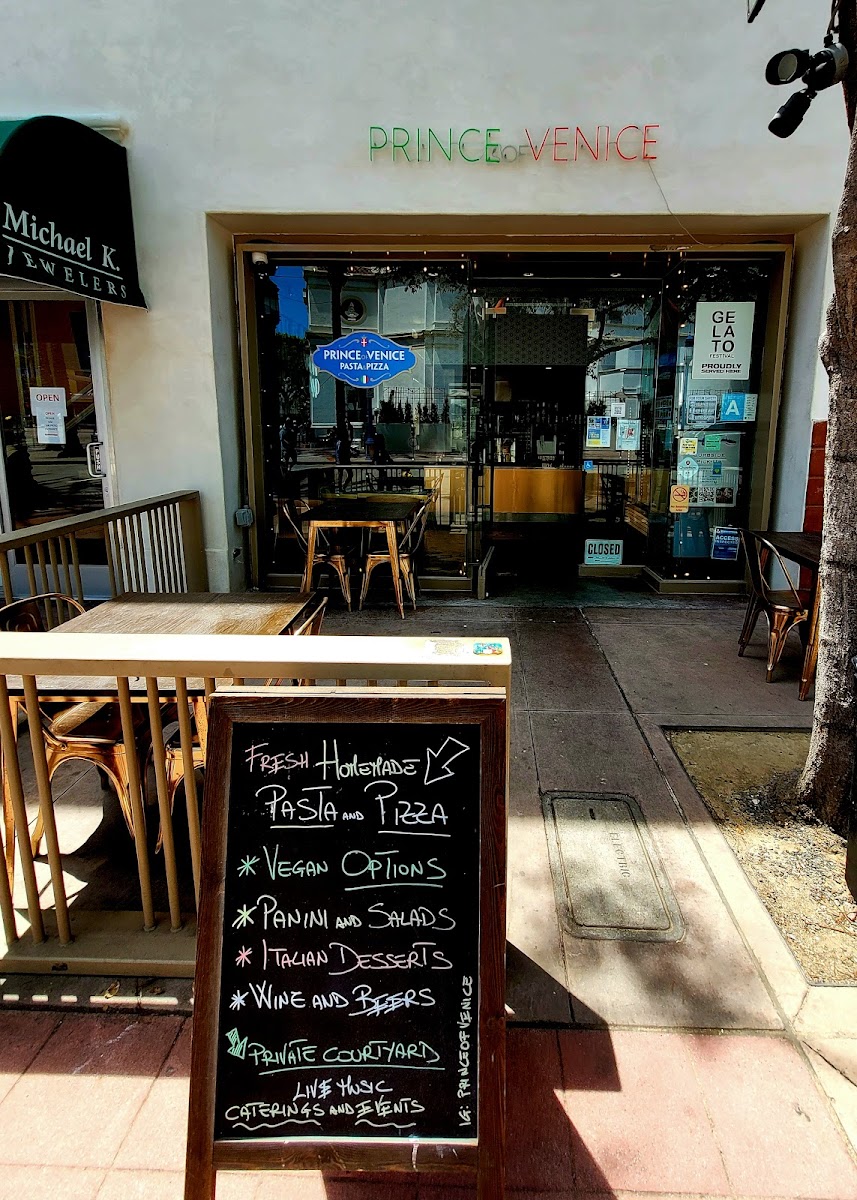 PRINCE OF VENICE
Michael K.
JEWELERS
OPEN
OPEN
PRINCE OF VENICE
PASTA & PIZZA
GE
LA
TO
FESTIVAL
PROUDLY
SERVED HERE
A
CLOSED
ACCESS
ELECTRIC
FRESH HOMEMADE
PASTA AND PIZZA
* VEGAN OPTIONS
* PANINI AND SALADS
* ITALIAN DESSERTS
* WINE AND BEERS
PRIVATE COURTYARD
LIVE MUSIC
CATERINGS AND EVENTS
IG: PRINCEOFVENICE